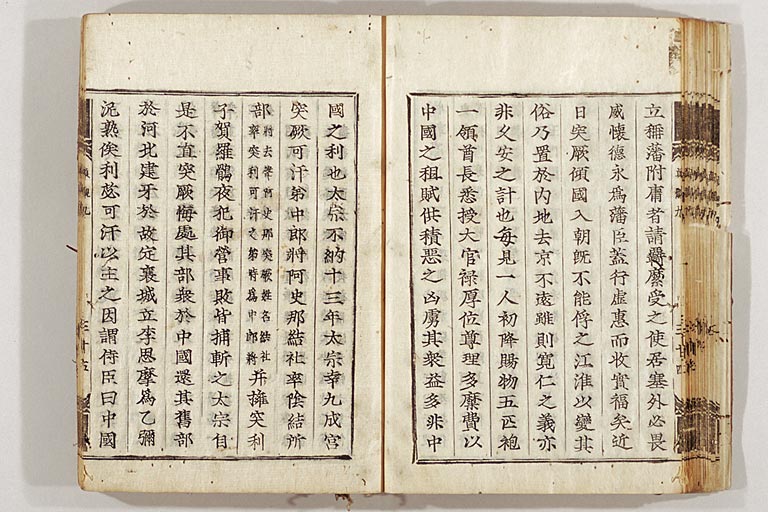 立稱藩附庸者請羈縻受之使居塞外必畏
威懷德永爲藩臣蓋行虛惠而收實福矣近
日突厥傾國入朝旣不能俘之江淮以變其
俗乃置於內地去京不遠雖則寬仁之義亦
非久安之計也每見一人初降賜物五匹袍
一領酋長悉授大官祿厚位尊理多縻費以
中國之租賦供積惡之凶虜其衆益多非中
國之利也太宗不納十三年太宗幸九成宮
突厥可汗弟中郞將阿史那結社率陰結所
部 幷擁突利
子賀羅鶻夜犯御營事敗皆捕斬之太宗自
是不直突厥悔處其部衆於中國還其舊部
於河北建牙於故定襄城立李思摩爲乙彌
泥熟俟利苾可汗以主之因謂侍臣曰中國
三十五